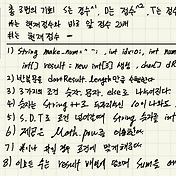 총 3번의 기회 S는 점수¹, D는 점수², T는 점수
*는 현재점수와 바로 앞 점수 2배
#는 현재 점수 -
1) String make_num = " ", int idx=0; int num
int[] result = new int[3] 생성, char[] d
2) 반복문을 dartResult.length만큼 수행한다.
3) 3가지의 조건 숫자, 문자, else로 나누어진다.
4) 숫자는 String ++로 누적되니 10이 나와도
5) S, D, T로 조건 넘어갈때 String 숫자를 int
6) 제곱은 Math.pow를 이용한다.
7) 조건에 맞게
8) 이로는 수는 result 배열에 넣어 sum을